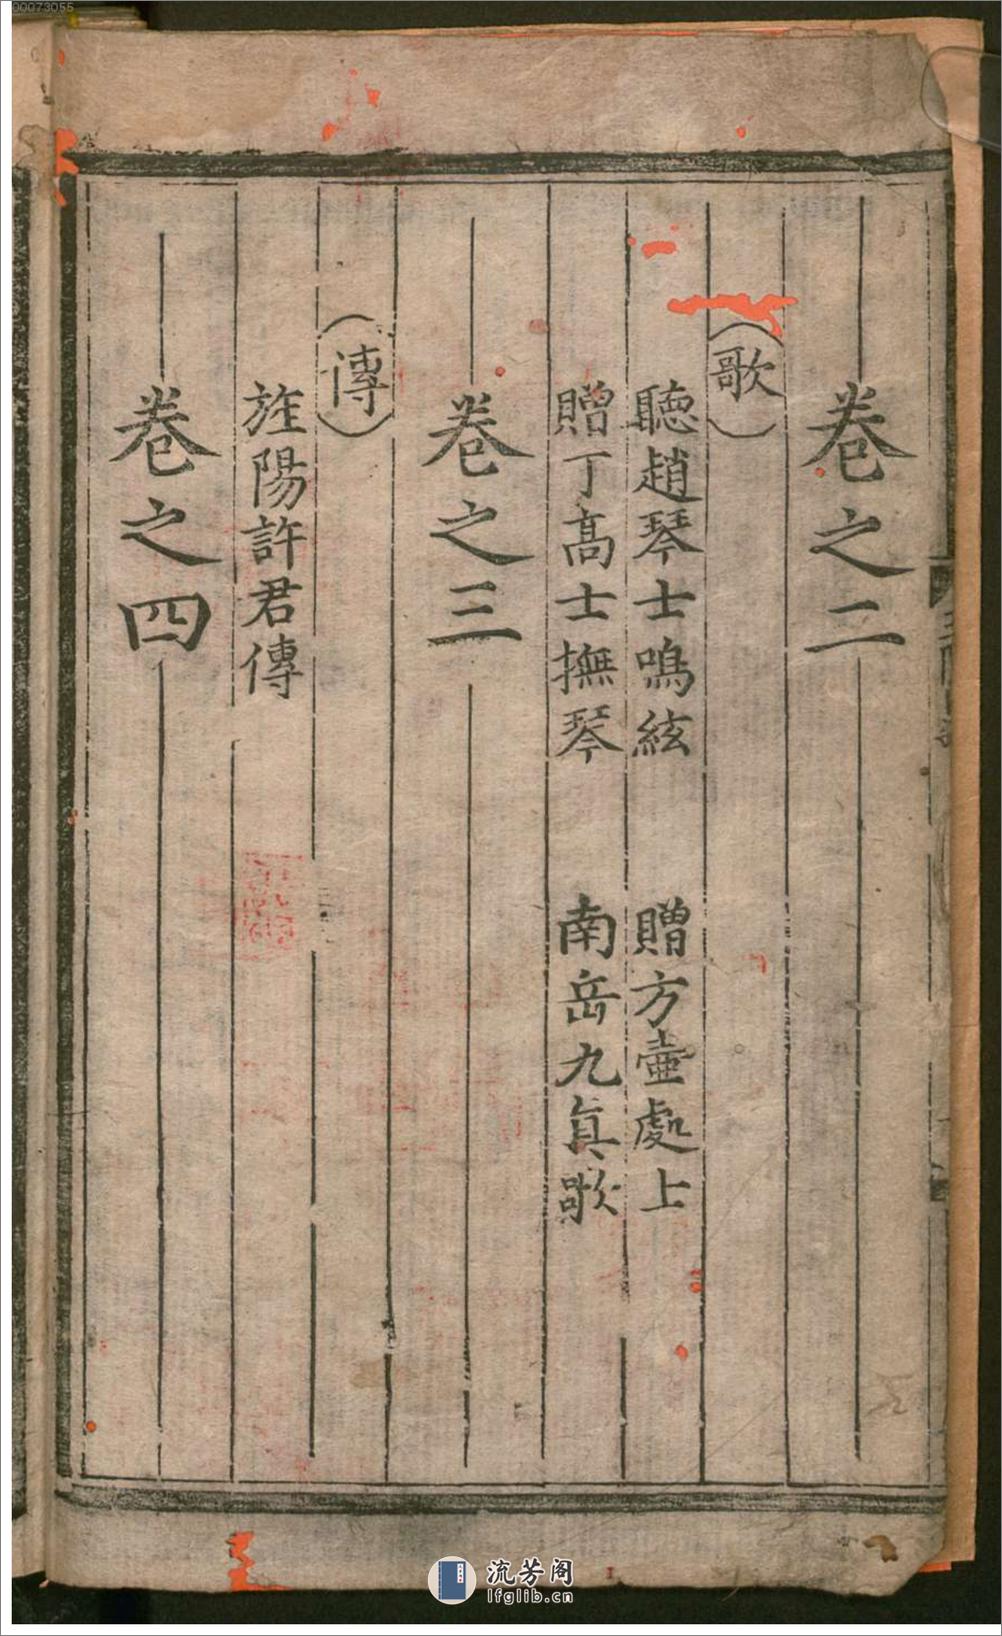 卷之二
歌
聽趙琴士鳴絃　贈方壺處上
贈丁高士撫琴　南岳九眞歌
卷之三
傳
旌陽許君傳
卷之四
00073055
流芳阁
lfglib.cn